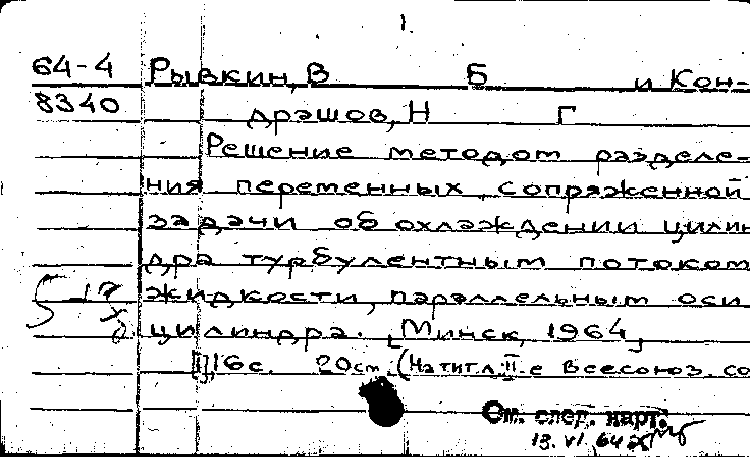 1.
64-4 Рывкин, В Б и Кон-
8340 драшов, Н Г
Решение методом разделе-
ния переменных сопряженной
задачи об охлаждении цилин
дра турбулентным потоком
жидкости, параллельным оси
цилиндра. [Минск, 1964]
[1], 16 с. 20 см. (На тит. л.: II-е Всесоюз. со
См. след. карт.
13. VI 64